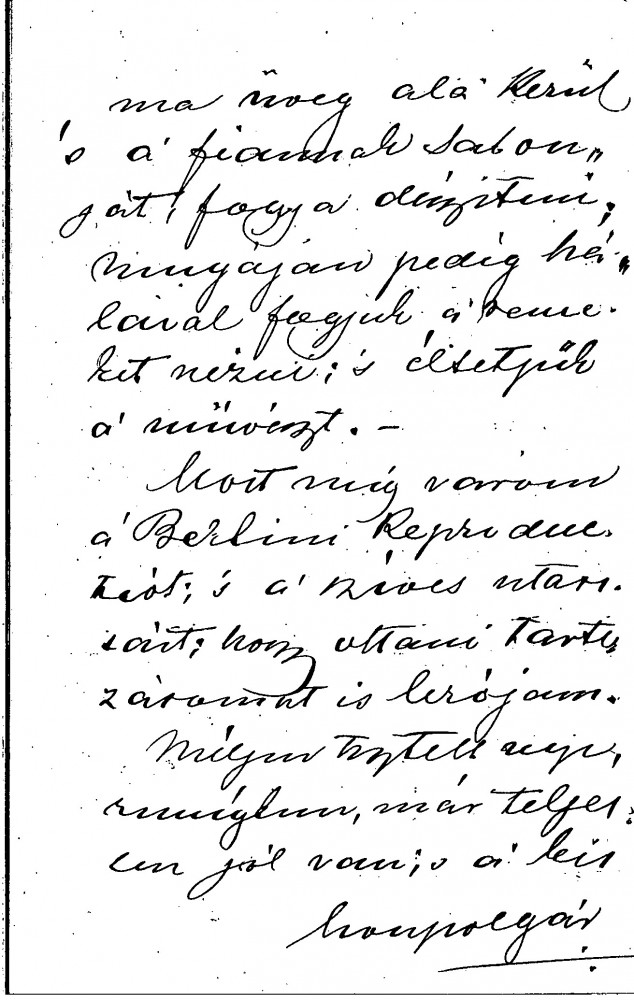 ma üveg alá Kerül
's a' fiamnak salon„
ját; fogja díszíteni;
pedig há„
lával fogjuk a' reme„
ket nézni; 's éltetjük
a' művészt. –
Most még várom
a' Berlini Reproduc„
tiót; 's a' szíves utasí„
sát; hogy ottani Tarto„
zásomat is lerójam.
Mélyen tisztelt
már teljes„
en jól van; 's a' kis
honpolgár